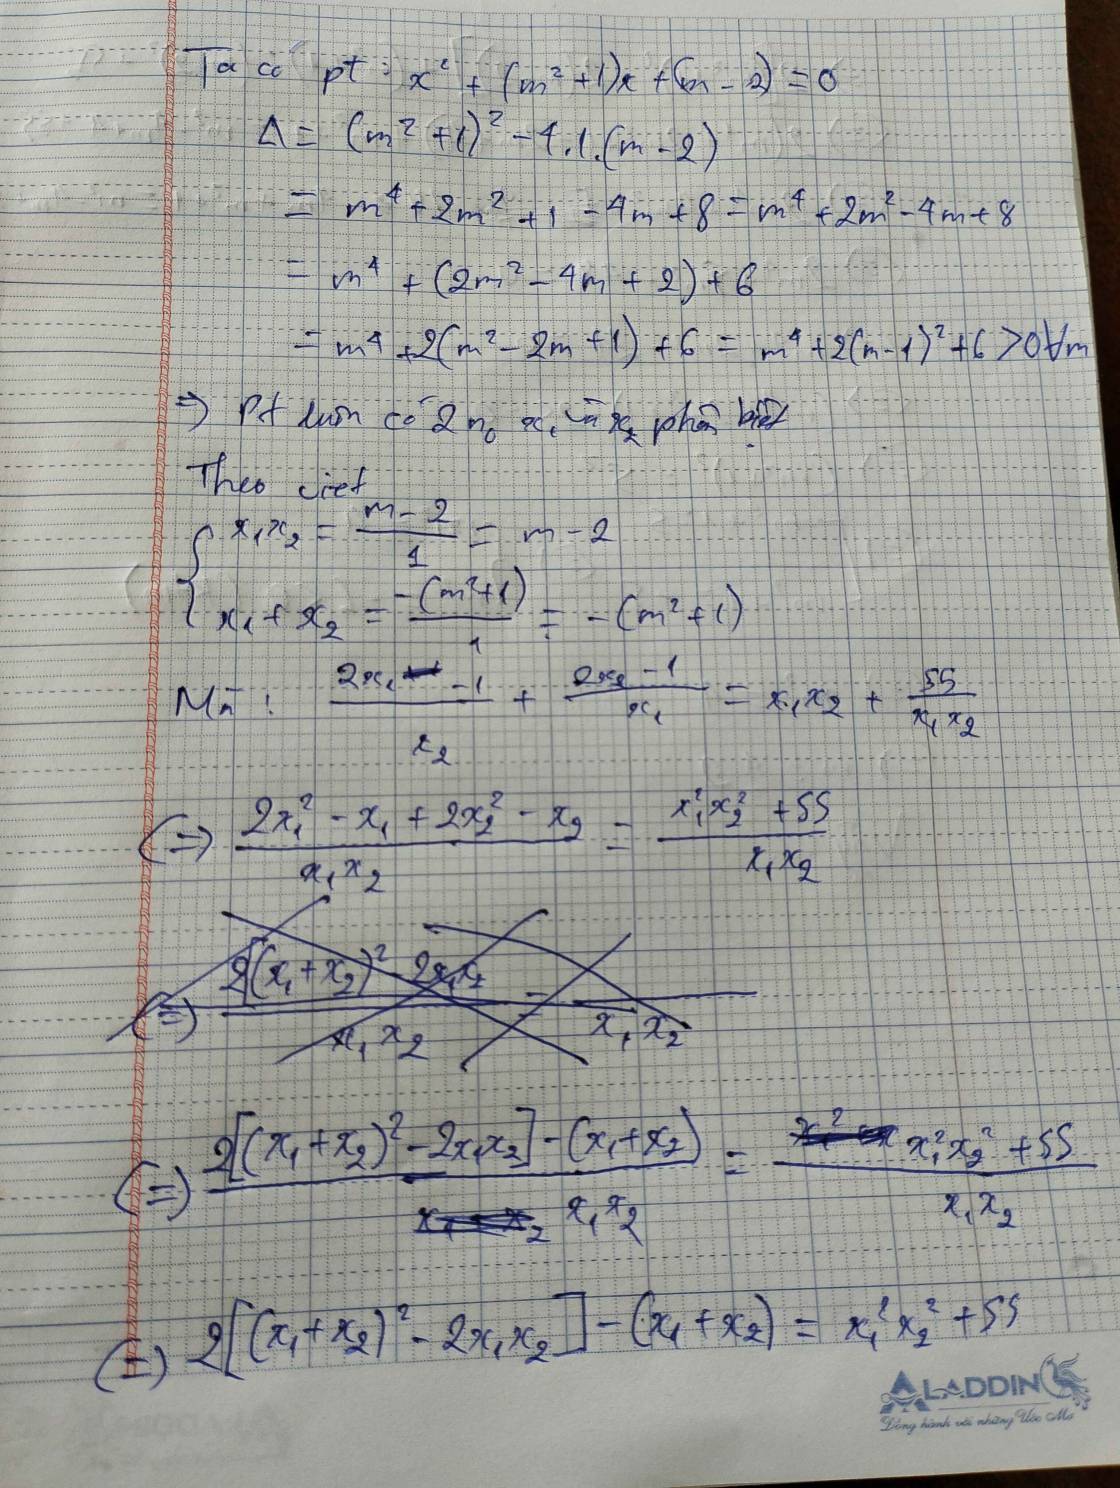 Ta có pt: x² + (m²+1)x + (m-2) = 0
Δ = (m²+1)² - 4.1.(m-2)
= m⁴ + 2m² + 1 - 4m + 8 = m⁴ + 2m² - 4m + 8
= m⁴ + (2m² - 4m + 2) + 6
= m⁴ + 2(m² - 2m + 1) + 6 = m⁴ + 2(m-1)² + 6 > 0 ∀m
=> Pt luôn có 2 n₀ x₁ và x₂ phân biệt
Theo viet
{ x₁x₂ = (m-2)/1 = m - 2
x₁ + x₂ = -(m²+1)/1 = -(m²+1)
Mà: (2x₁ - 1)/x₂ + (2x₂ - 1)/x₁ = x₁x₂ + 55/(x₁x₂)
(=) (2x₁² - x₁ + 2x₂² - x₂)/(x₁x₂) = (x₁²x₂² + 55)/(x₁x₂)
(=) (2[(x₁+x₂)² - 2x₁x₂)/(x₁x₂) - /(x₁x₂)
(=) (2[(x₁+x₂)² - 2x₁x₂] - (x₁+x₂))/(x₁x₂) = (x₁²x₂² + 55)/(x₁x₂)
(=) 2[(x₁+x₂)² - 2x₁x₂] - (x₁+x₂) = x₁²x₂² + 55
ALADDIN
Đồng hành với những Ước Mơ